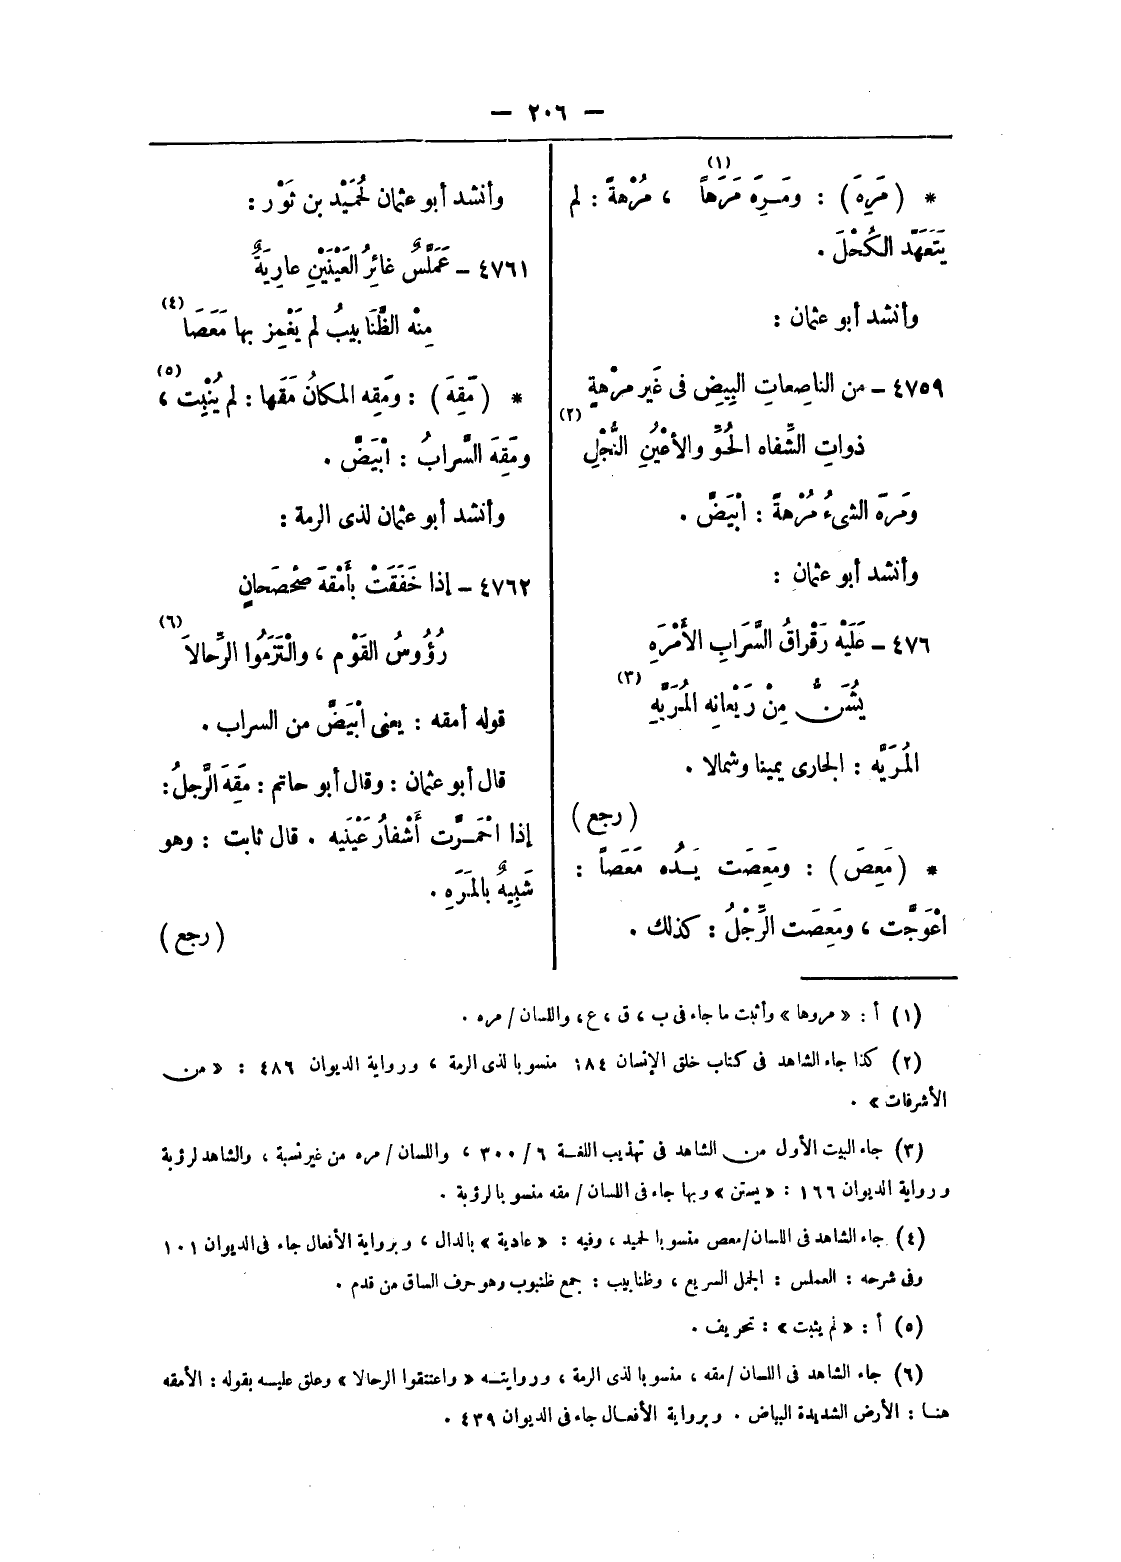 — ٢٠٦ —
* ( مَرِهَ ) : ومَـرِهَ مَرَهَاً (١) ، مُرْهةً : لم
يَتَعَهَّد الكُحْلَ .
وأنشد أبو عثمان :
٤٧٥٩ ــ من الناصعاتِ البِيِضِ فى غَير مرْهةٍ
ذواتِ الشِّفاه الحُوِّ والأعْيُنِ النُّجْلِ (٢)
ومَرَه الشىءُ مُرْهةً : ابْيَضَّ .
وأنشد أبو عثمان :
٤٧٦ ــ عَلَيْه رَقْراقُ السَّرابِ الأَمْرَهِ
يُسْتَنُّ مِنْ رَيْعانِه المُرَيَّهِ (٣)
المُرَيَّه : الجارى يمينا وشمالا .
( رجع )
* ( مَعِصَ ) : ومَعِصَت يَـدُه مَعَصاً :
اعْوَجَّت ، ومَعِصَت الرِّجْلُ : كذلك .
وأنشد أبو عثمان لحُمَيْد بن ثَوْر :
٤٧٦١ ــ عَمَلَّسٌ غائِرُ العَيْنَيْنِ عارِيَةٌ
مِنْه الظَّنَابيبُ لم يَغْمِز بها مَعَصَا (٤)
* ( مَقِهَ ) : ومَقِه المكانُ مَقَها : لم يُنْبِت (٥) ،
ومَقِهَ السَّرابُ : ابْيَضَّ .
وأنشد أبو عثمان لذى الرمة :
٤٧٦٢ ــ إذا خَفَقَتْ بأَمْقهَ صَحْصَحانٍ
رُؤُوسُ القَوْمِ ، والْتَزَمُوا الرِّحالاَ (٦)
قوله أمقه : يعنى ابْيَضَّ من السراب .
قال أبو عثمان : وقال أبو حاتم : مَقِهَ الرَّجلُ :
إذا احْمَـرَّت أَشْفارُ عَيْنَيه . قال ثابت : وهو
شَبِيهٌ بالمَرَهِ .
( رجع )
(١) أ : « مروها » وأثبت ما جاء فى ب ، ق ، ع ، واللسان / مره .
(٢) كذا جاء الشاهد فى كتاب خلق الإنسان ١٨٤ منسوبا لذى الرمة ، ورواية الديوان ٤٨٦ : « من
الأشرفات » .
(٣) جاء البيت الأول من الشاهد فى تهذيب اللغة ٦ / ٣٠٠ ، واللسان / مره من غير نسبة ، والشاهد لرؤبة
ورواية الديوان ١٦٦ : « يستن » وبها جاء فى اللسان / مقه منسوبا لرؤبة .
(٤) جاء الشاهد فى اللسان/معص منسوبا لحميد ، وفيه : « عادية » بالدال ، وبرواية الأفعال جاء فى الديوان ١٠١
وفى شرحه : العملس : الجمل السريع ، وظنابيب : جمع ظنبوب وهو حرف الساق من قدم .
(٥) أ : « لم يثبت » : تحريف .
(٦) جاء الشاهد فى اللسان /مقه ، منسوبا لذى الرمة ، وروايتـه « واعتنقوا الرحالا » وعلق عليـه بقوله : الأمقه
هنـا : الأرض الشديدة البياض . وبرواية الأفعـال جاء فى الديوان ٤٣٩ .